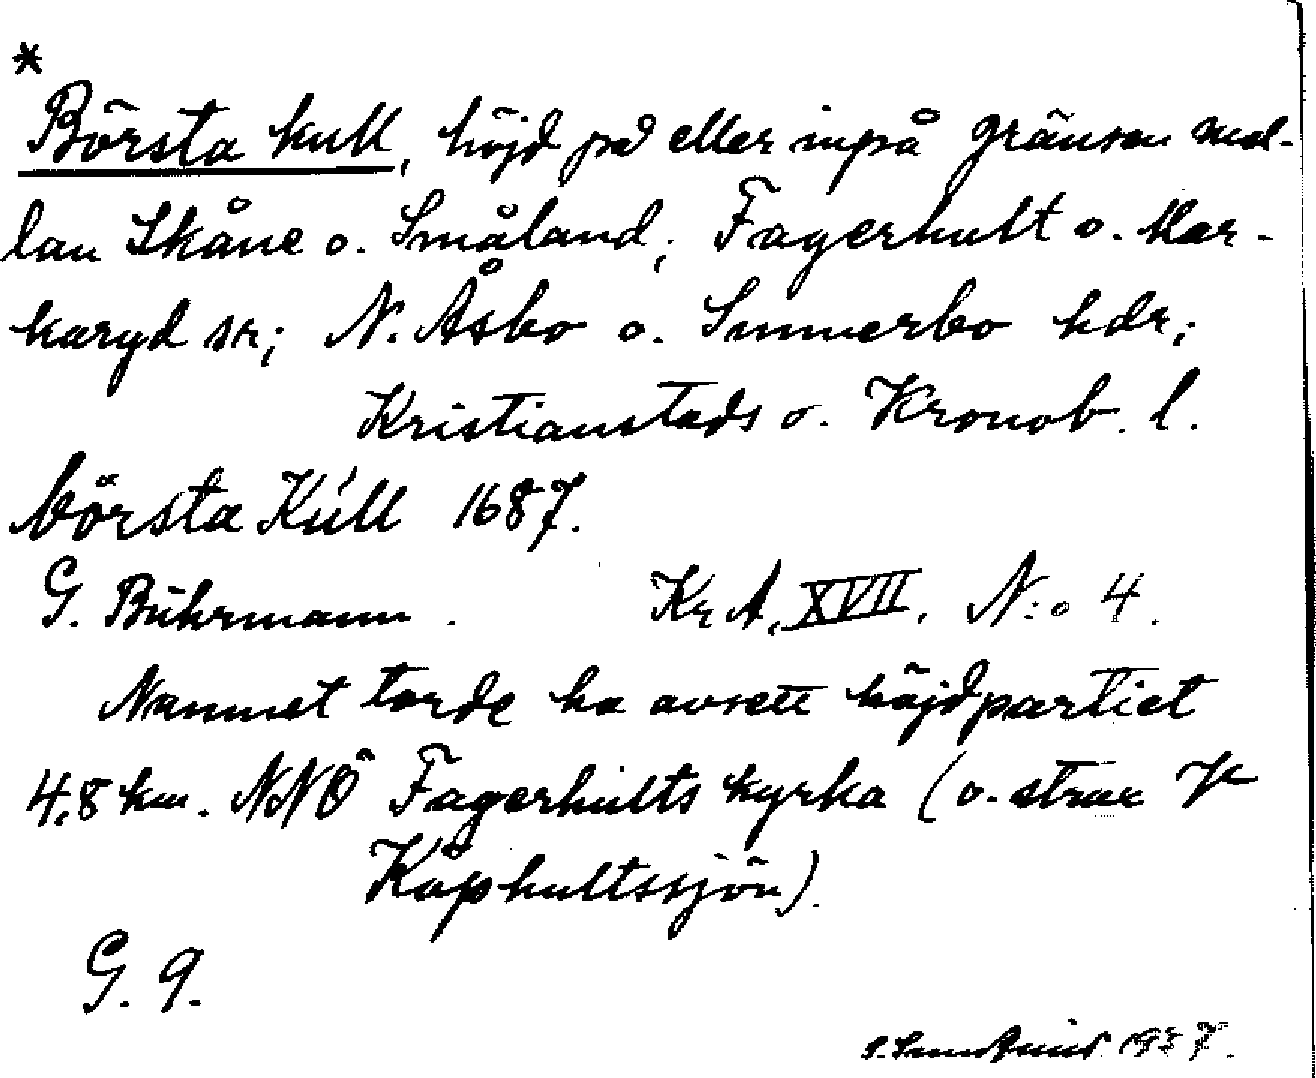 *
Börsta kull, höjd på eller inpå gränsen mel-
lan Skåne o. Småland; Fagerhult o. Mar-
karyd sn; N. Åsbo o. Sunnerbo hdr;
Kristianstads o. Kronob. l.
börsta Kúll 1687.
G. Buhrmann. KrA, XVII, N:o 4.
Namnet torde ha avsett höjdpartiet
4,8 km. NNÖ Fagerhults kyrka (o. strax V
Kåphultssjön).
G. 9.